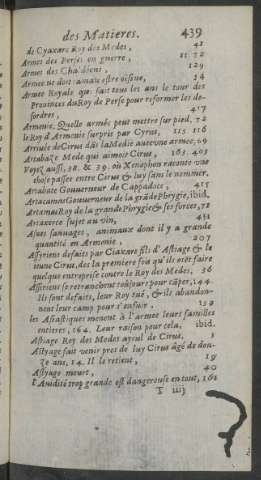 des Matieres. 439
de Cyaxare Roy des Medes, 41
Armes des Perses en guerre, 11. 72
Armes des Chaldéens, 129
Armee ne doit iamais estre oisiue, 14
Armee Royale que fait tous les ans le tour des
Prouinces du Roy de Perse pour reformer les de-
sordres, 417
Armenie. Quelle armée peut mettre sur pied, 72
le Roy d'Armenie surpris par Cyrus, 115 116
Arriuée de Cirus dās la Medie auec vne armee, 69
Artabaze Mede qui aimoit Cirus, 163. 403
Voyez aussi, 38. & 39. où Xenophon raconte vne
chose passee entre Cirus & luy sans le nommer.
Artabate Gouuerneur de Cappadoce, 415
Artacamas Gouuerneur de la grāde Phrygie, ibid.
Artamas Roy de la grande Phrygie & ses forces, 72
Artaxerce sujet au vin, 431
Asnes sauuages, animaux dont il y a grande
quantité en Armenie, 207
Assyriens defaits par Ciaxare fils d'Astiage & le
ieune Cirus, des la premiere fois qu'ils ōrēt faire
quelque entreprise contre le Roy des Medes, 36
Assiriens se retranchent toûjours pour cāper, 144.
Ils sont defaits, leur Roy tué, & ils abandon-
nent leur camp pour s'enfuir.
les Asiastiques menent à l'armee leurs familles
entieres, 164. Leur raison pour cela, ibid.
Astiage Roy des Medes ayeul de Cirus,
Astyage fait venir pres de luy Cirus âgé de dou-
ze ans, 14. Il le retient, 19
Astyage meurt, 40
l'Auidité trop grande est dangereuse en tout, 161
T iiij